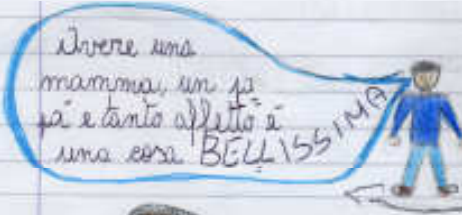 Avere una
mamma, un pa
pà e tanto affetto è
una cosa BELLISSIMA